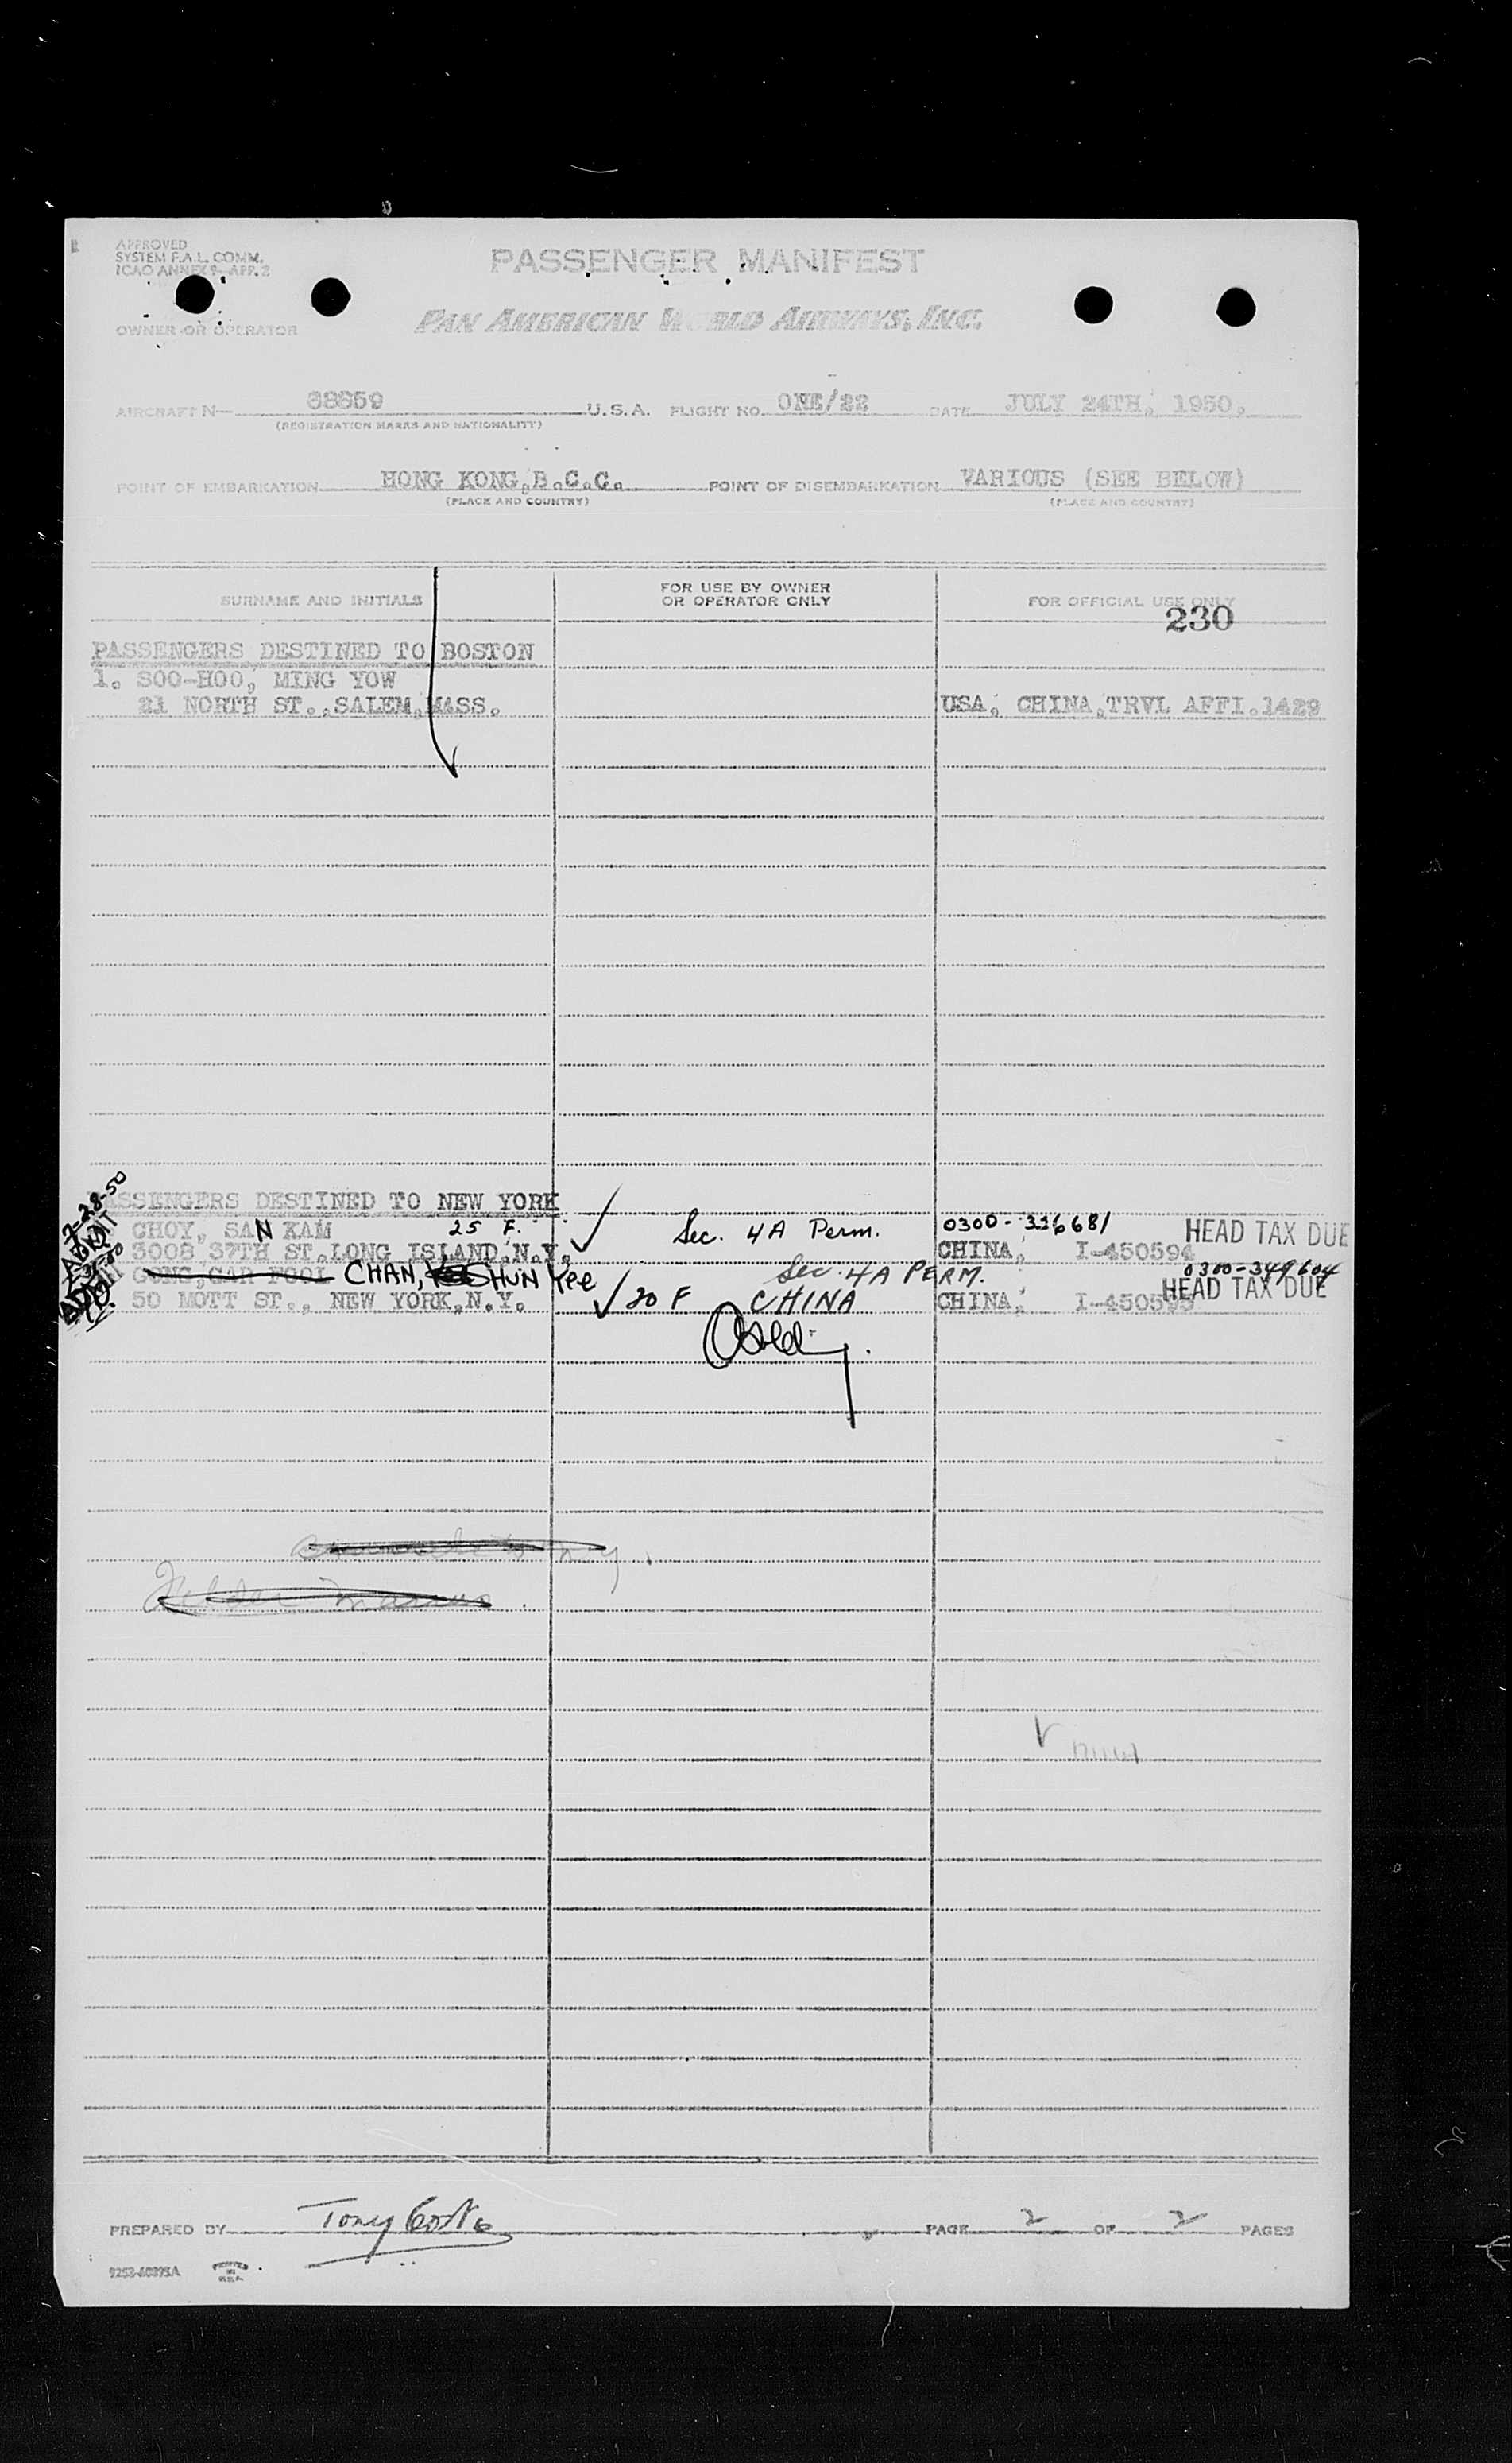 APPROVED
SYSTEM F.A.L. COMM.
ICAO ANNEX 9—APP. 2
PASSENGER MANIFEST
OWNER OR OPERATOR
PAN AMERICAN WORLD AIRWAYS, INC.
AIRCRAFT N— 88859 U.S.A. FLIGHT NO. ONE/22 DATE JULY 24TH, 1950,
(REGISTRATION MARKS AND NATIONALITY)
POINT OF EMBARKATION HONG KONG,B.C.C. POINT OF DISEMBARKATION VARIOUS (SEE BELOW)
(PLACE AND COUNTRY) (PLACE AND COUNTRY)
SURNAME AND INITIALS
FOR USE BY OWNER
OR OPERATOR ONLY
FOR OFFICIAL USE ONLY
230
PASSENGERS DESTINED TO BOSTON
1. SOO-HOO, MING YOW
21 NORTH ST.,SALEM,MASS. USA, CHINA,TRVL AFFI.1429
7-28-50
ADMIT
PASSENGERS DESTINED TO NEW YORK
CHOY, SAN KAM 25 F. Sec. 4A Perm. 0300-336681 HEAD TAX DUE
3008 37TH ST.,LONG ISLAND,N.Y. CHINA, I-450594
GONG,GAR FOOI CHAN, SHUN Yee Sec. 4A PERM. 0300-349604
50 MOTT ST., NEW YORK,N.Y. 20 F CHINA CHINA, I-450595 HEAD TAX DUE
ADMIT
PREPARED BY Tony PAGE 2 OF 2 PAGES